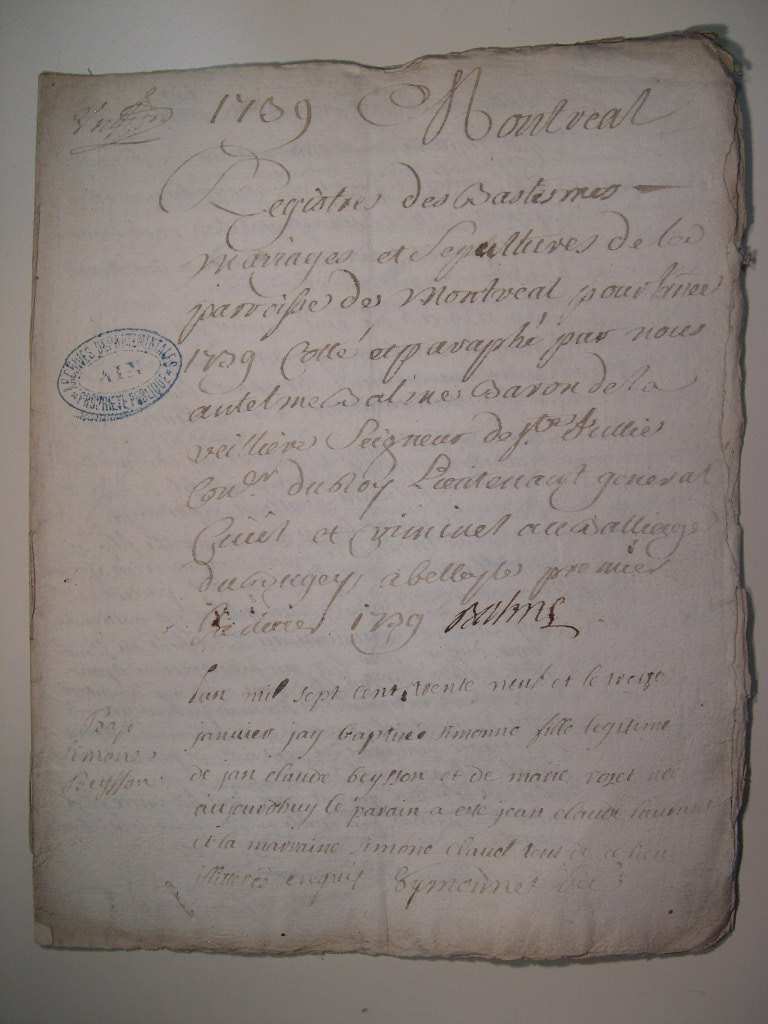 1739 Montreal
Registres des Bastesmes
mariages et Sepultures de la
parroisse de Montreal pour lanée
1739 Cotté et paraphé par nous
antelme Balme Baron de la
veilliere Seigneur de Ste Jullie
Coner du Roy Lieutenant general
Civil et Criminel au Balliage
du Bugey, a belley le premier
Janvier 1739 Balme
ARCHIVES DEPARTEMENTALES
AIN
PROPRIETE PUBLIQUE
Bap.
simone
Beysson
lan mil sept cent trente neuf et le treize
janvier jay baptisée simonne fille legitime
de jan claude beysson et de marie rozet née
aujourdhuy le parain a esté jean claude
et la marraine simone claudet tous de ce lieu
illitterés enquis Eymonnet vic